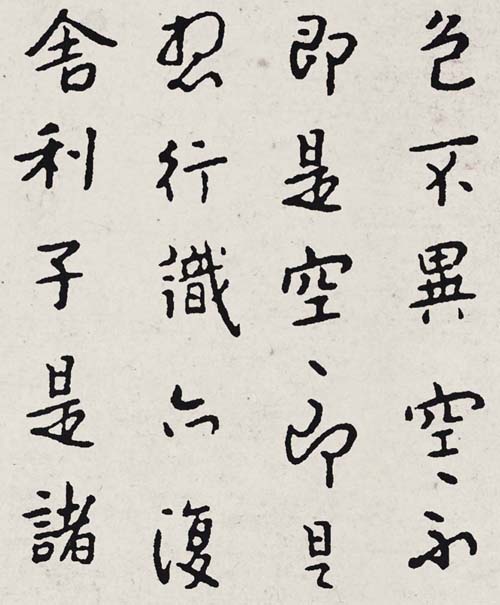 色不異空〻不
即是空〻即是
想行識亦復
舍利子是諸